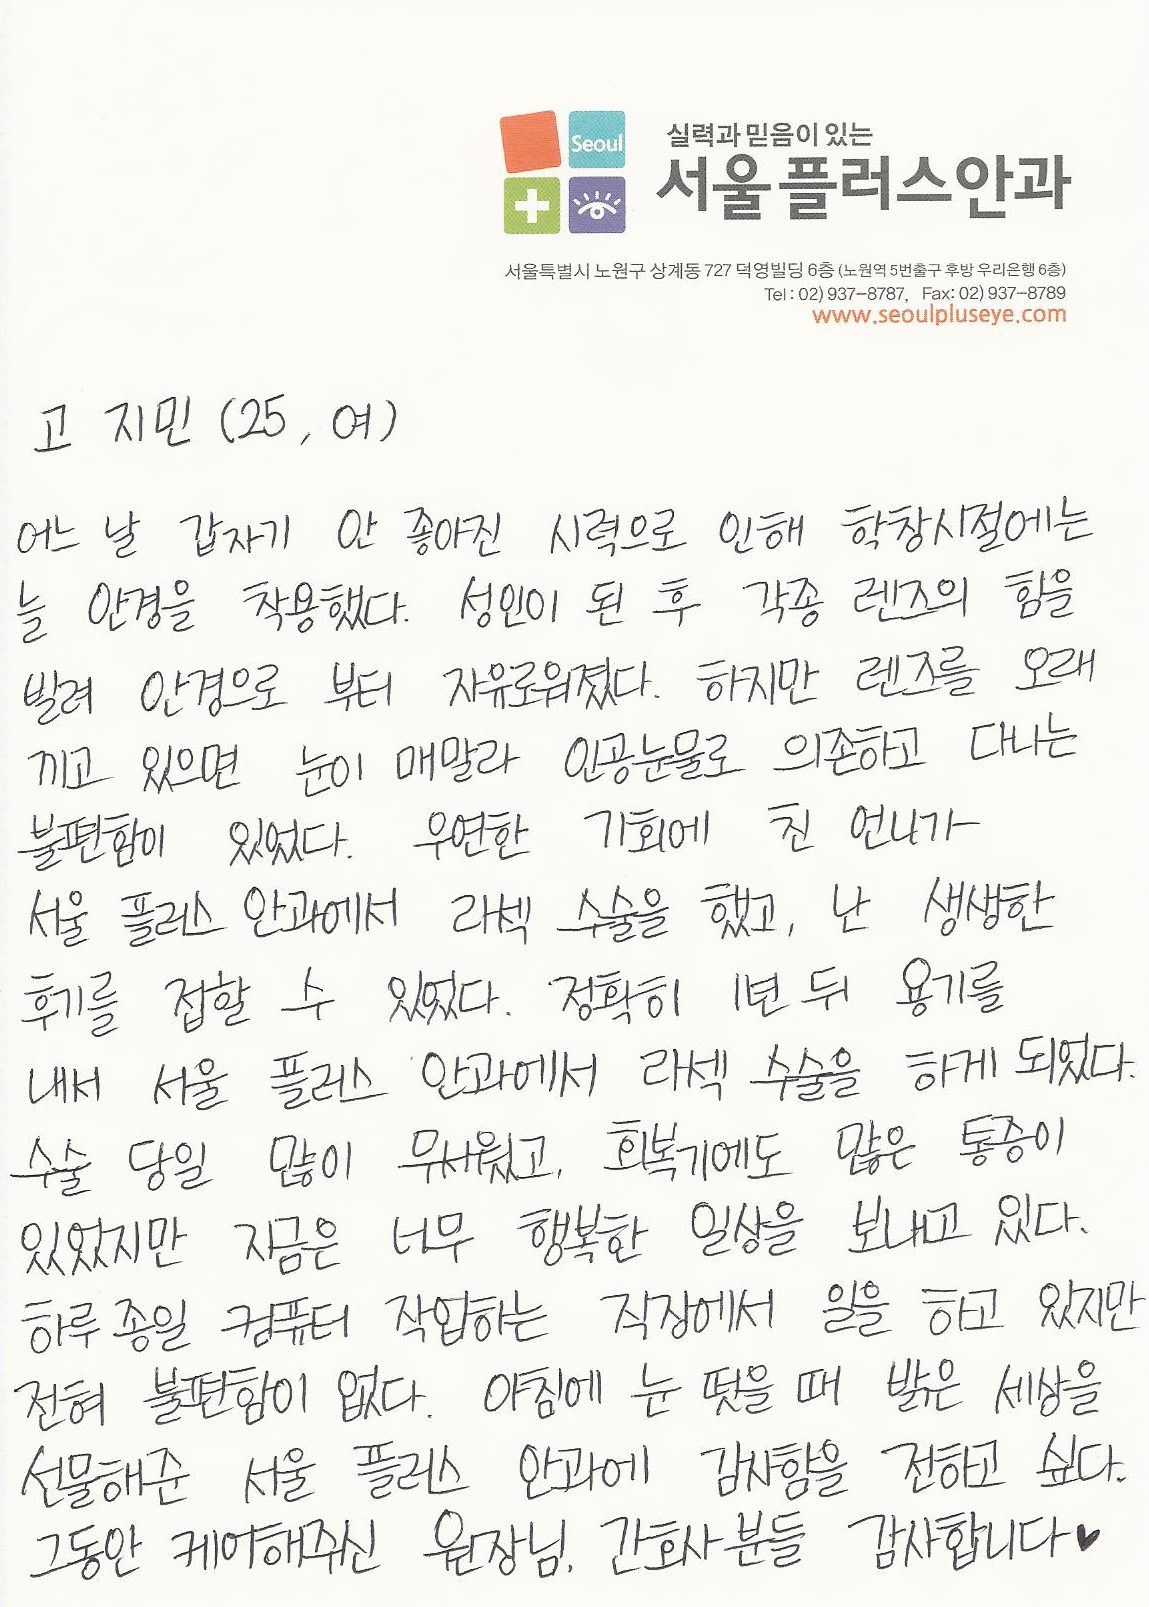 Seoul
실력과 믿음이 있는
서울플러스안과
서울특별시 노원구 상계동 727 덕영빌딩 6층 (노원역 5번출구 후방 우리은행 6층)
Tel : 02) 937-8787, Fax: 02) 937-8789
www.seoulpluseye.com
고 지민 (25, 여)
어느 날 갑자기 안 좋아진 시력으로 인해 학창시절에는
늘 안경을 착용했다. 성인이 된 후 각종 렌즈의 힘을
빌려 안경으로 부터 자유로워졌다. 하지만 렌즈를 오래
끼고 있으면 눈이 매말라 인공눈물로 의존하고 다니는
불편함이 있었다. 우연한 기회에 친 언니가
서울 플러스 안과에서 라섹 수술을 했고, 난 생생한
후기를 접할 수 있었다. 정확히 1년 뒤 용기를
내서 서울 플러스 안과에서 라섹 수술을 하게 되었다.
수술 당일 많이 무서웠고, 회복기에도 많은 통증이
있었지만 지금은 너무 행복한 일상을 보내고 있다.
하루 종일 컴퓨터 작업하는 직장에서 일을 하고 있지만
전혀 불편함이 없다. 아침에 눈 떳을 때 밝은 세상을
선물해준 서울 플러스 안과에 감사함을 전하고 싶다.
그동안 케어해주신 원장님, 간호사 분들 감사합니다♥